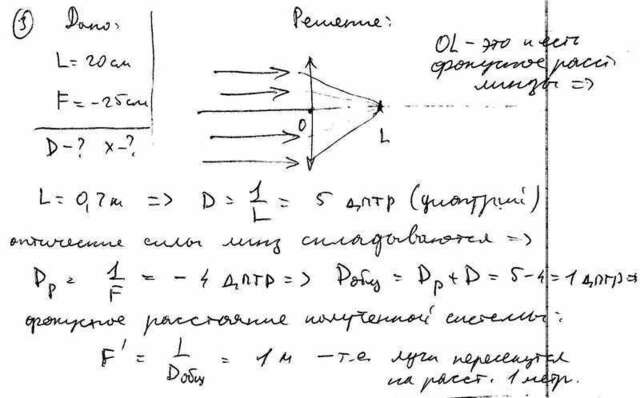 3 Дано:
L = 20 см
F = -25 см
D - ? x - ?
Решение:
O
L
OL - это и есть
фокусное расст
линзы =>
L = 0,2 м => D = 1/L = 5 дптр (диоптрий)
оптические силы линз складываются =>
Dр = 1/F = - 4 дптр => Dобщ = Dр + D = 5-4 = 1 дптр =>
фокусное расстояние полученной системы:
F' = 1/Dобщ = 1 м - т.е. лучи пересекутся
на расст. 1 метр.